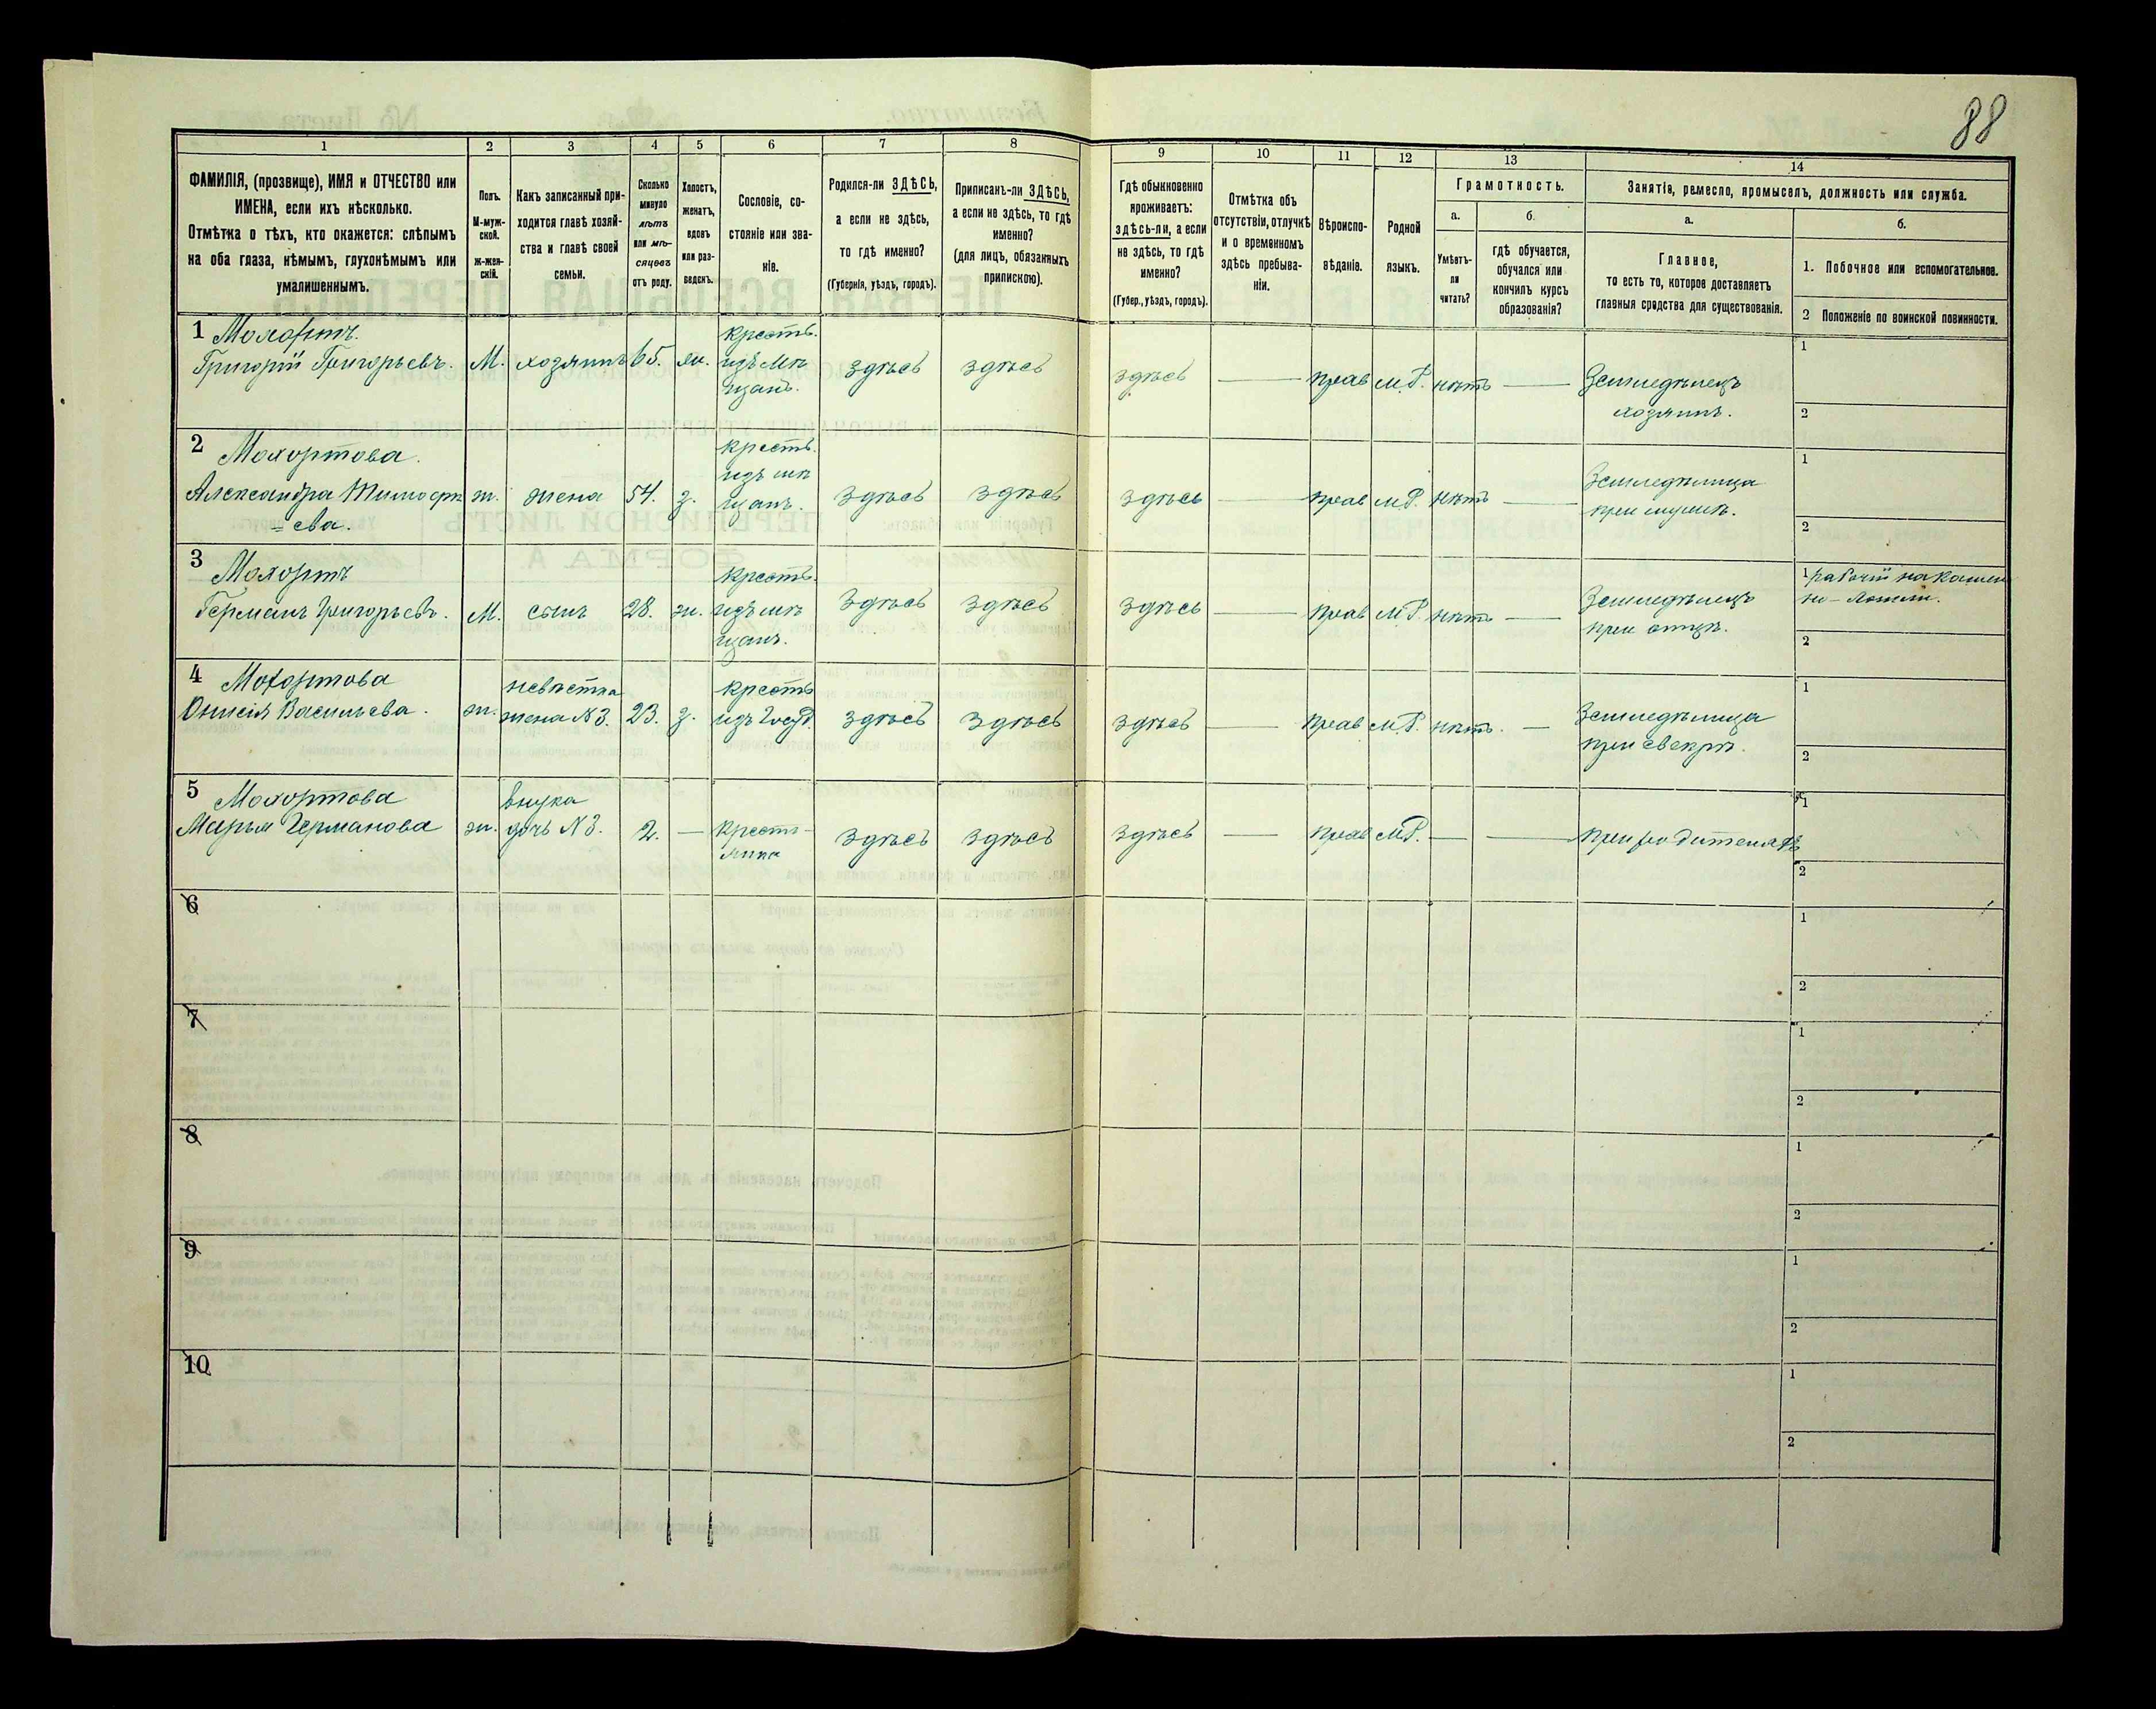 88
1 2 3 4 5 6 7 8 9 10 11 12 13 14
ФАМИЛІЯ, (прозвище), ИМЯ и ОТЧЕСТВО или
ИМЕНА, если ихъ нѣсколько.
Отмѣтка о тѣхъ, кто окажется: слѣпымъ
на оба глаза, нѣмымъ, глухонѣмымъ или
умалишеннымъ.
Полъ.
М-муж-
ской.
Ж-жен-
скій.
Какъ записанный при-
ходится главѣ хозяй-
ства и главѣ своей
семьи.
Сколько
минуло
лѣтъ
или мѣ-
сяцевъ
отъ роду.
Холостъ,
женатъ,
вдовъ
или раз-
веденъ.
Сословіе, со-
стояніе или зва-
ніе.
Родился-ли ЗДѢСЬ,
а если не здѣсь,
то гдѣ именно?
(Губернія, уѣздъ, городъ).
Приписанъ-ли ЗДѢСЬ,
а если не здѣсь, то гдѣ
именно?
(для лицъ, обязанныхъ
припискою).
Гдѣ обыкновенно
проживаетъ:
здѣсь-ли, а если
не здѣсь, то гдѣ
именно?
(Губер., уѣздъ, городъ).
Отмѣтка объ
отсутствіи, отлучкѣ
и о временномъ
здѣсь пребыва-
ніи.
Вѣроиспо-
вѣданіе.
Родной
языкъ.
Грамотность.
а.
Умѣетъ-
ли
читать?
б.
гдѣ обучается,
обучался или
кончилъ курсъ
образованія?
Занятіе, ремесло, промыселъ, должность или служба.
а.
Главное,
то есть то, которое доставляетъ
главныя средства для существованія.
б.
1. Побочное или вспомогательное.
2 Положеніе по воинской повинности.
1 Мохортъ.
Григорій Григорьевъ.
М.
хозяинъ
65.
жн.
крестъ.
изъ мѣ
щанъ.
здѣсь
здѣсь
здѣсь
—
прав
мР.
нѣтъ
—
Земледѣлецъ
хозяинъ.
1
2
2 Мохортова.
Александра Тимофѣ
= ева.
ж.
жена
54.
з.
крестъ.
изъ мѣ
щанъ.
здѣсь
здѣсь
здѣсь
—
прав
мР.
нѣтъ
—
Земледѣлица
при мужѣ.
1
2
3 Мохортъ
Германъ Григорьевъ.
М.
сынъ
28.
ж.
крестъ.
изъ мѣ
щанъ.
здѣсь
здѣсь
здѣсь
—
прав
мР.
нѣтъ
—
Земледѣлецъ
при отцѣ.
1 рабочій на камен
но-ломни.
2
4 Мохортова
Онисія Васильева.
ж.
невѣстка
жена №3.
23.
з.
крестъ
изъ Госуд.
здѣсь
здѣсь
здѣсь
—
прав
мР.
нѣтъ.
—
Земледѣлица
при свекрѣ.
1
2
5 Мохортова
Марья Германова
ж.
внука
дочь №3.
2.
—
кресть-
янка
здѣсь
здѣсь
здѣсь
—
прав
мР.
—
—
при родителяхъ
1
2
6
1
2
7
1
2
8
1
2
9
1
2
10
1
2